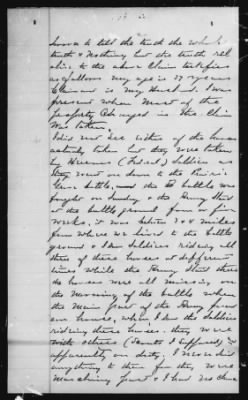 sworn to tell the truth the whole
truth & nothing but the truth rel
ative to the above claim testifies
as follows my age is 27 years
Claimant is my Husband. I was
present when most of the
property charged in this claim
was taken.
I did not see either of the horses
actually taken but they were taken
by Hueneus (Federal) Soldiers as
they went on down to the Prairie
Grove battle, and the battle was
fought on Sunday & the Army staid
at the battle ground for
weeks, it was between 3 & 4 miles
from where we lived to the battle
ground & I saw Soldiers riding all
three of these horses at different
times while the Army staid there
the horses were all missing on
the morning of the battle when
the main part of the Army passed
our house, when I saw the Soldiers
riding these horses they were
with others (Scouts I supposed) &
apparently on duty, I never did
anything to them for they were
marching past & I had no chance